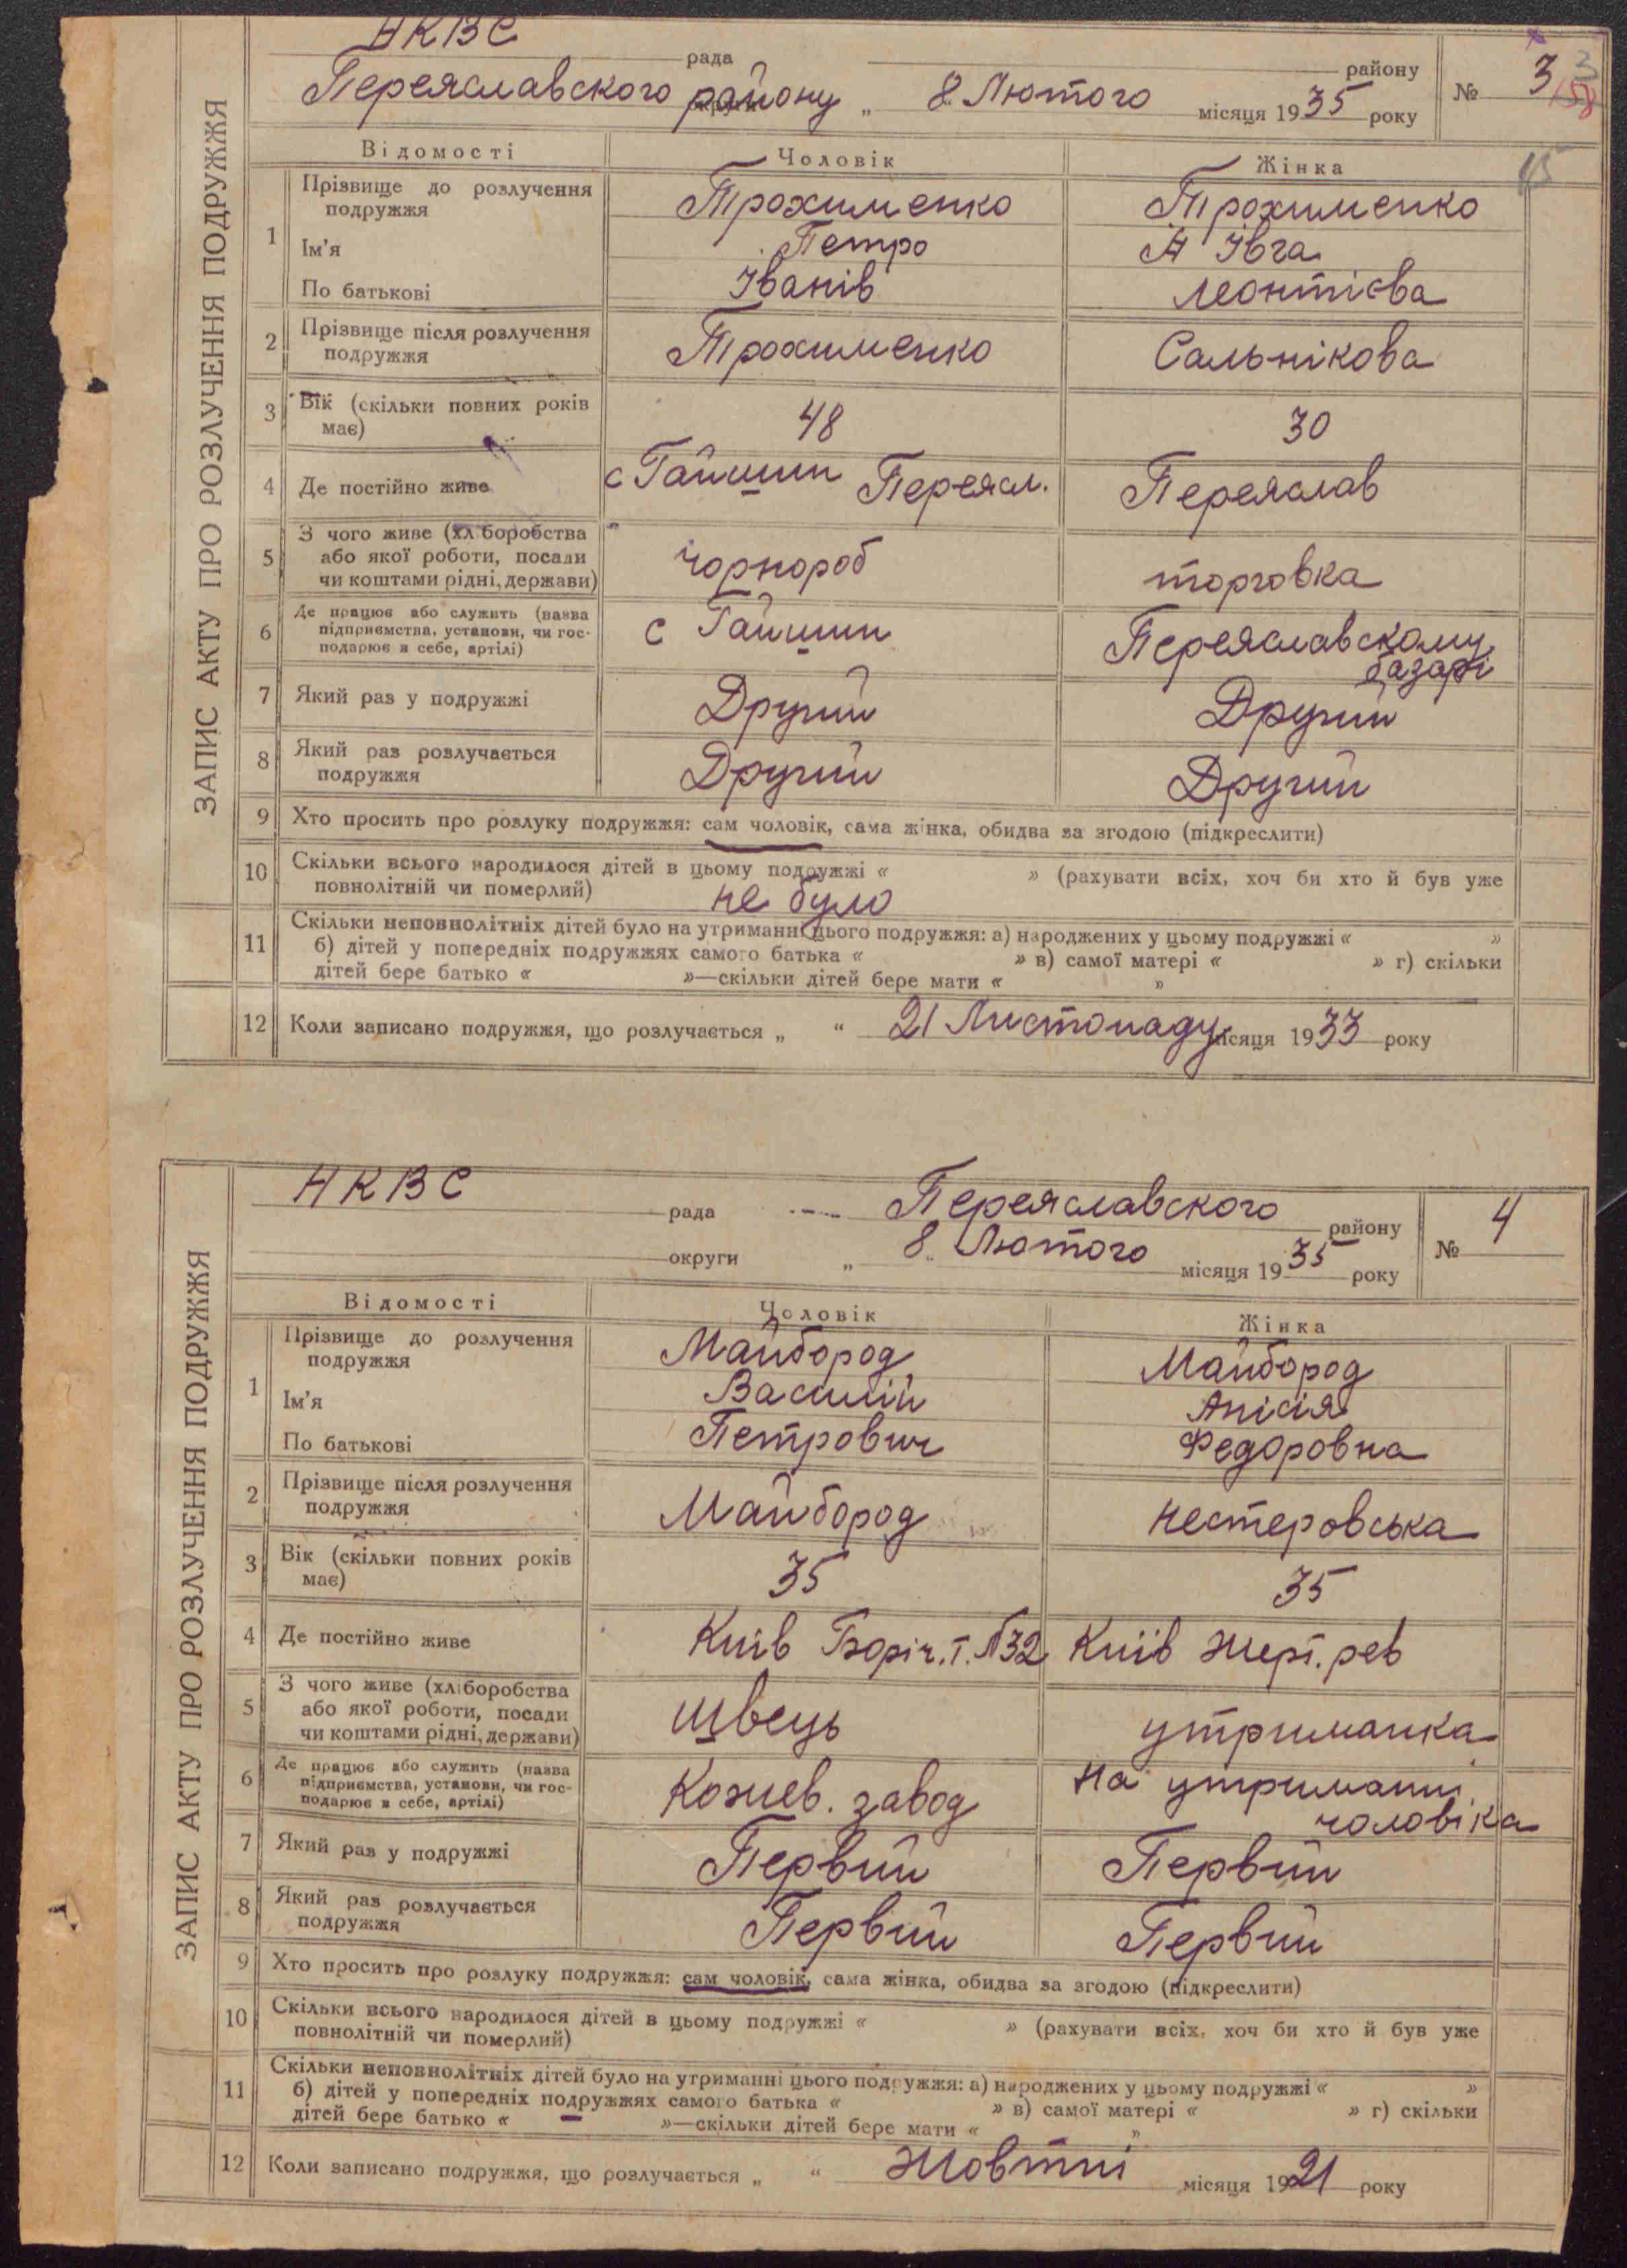 ЗАПИС АКТУ ПРО РОЗЛУЧЕННЯ ПОДРУЖЖЯ
НКВС рада району № 3
Переяславского району „ 8 Лютого місяця 1935 року
Відомості Чоловік Жінка
1 Прізвище до розлучення подружжя Трохименко Трохименко
Ім'я Петро Івга
По батькові Іванів Леонтієва
2 Прізвище після розлучення подружжя Трохименко Сальнікова
3 Вік (скільки повних років має) 48 30
4 Де постійно живе с Гайшин Переясл. Переяслав
5 З чого живе (хліборобства або якої роботи, посади чи коштами рідні, держави) чорнороб торговка
6 Де працює або служить (назва підприємства, установи, чи господарює в себе, артілі) с Гайшин Переяславскому базарі
7 Який раз у подружжі Другий Другий
8 Який раз розлучається подружжя Другий Другий
9 Хто просить про розлуку подружжя: сам чоловік, сама жінка, обидва за згодою (підкреслити)
10 Скільки всього народилося дітей в цьому подружжі « » (рахувати всіх, хоч би хто й був уже
повнолітній чи померлий) не було
11 Скільки неповнолітніх дітей було на утриманні цього подружжя: а) народжених у цьому подружжі « »
б) дітей у попередніх подружжях самого батька « » в) самої матері « » г) скільки
дітей бере батько « »—скільки дітей бере мати « »
12 Коли записано подружжя, що розлучається „ “ 21 Листопаду місяця 1933 року
ЗАПИС АКТУ ПРО РОЗЛУЧЕННЯ ПОДРУЖЖЯ
НКВС рада Переяславского району № 4
округи „ 8 Лютого місяця 1935 року
Відомості Чоловік Жінка
1 Прізвище до розлучення подружжя Майбород Майбород
Ім'я Василій Анісія
По батькові Петрович Федоровна
2 Прізвище після розлучення подружжя Майбород Нестеровська
3 Вік (скільки повних років має) 35 35
4 Де постійно живе Київ №32 Київ Жерт. рев
5 З чого живе (хліборобства або якої роботи, посади чи коштами рідні, держави) швець утриманка
6 Де працює або служить (назва підприємства, установи, чи господарює в себе, артілі) Кожев. завод На утриманні чоловіка
7 Який раз у подружжі Первий Первий
8 Який раз розлучається подружжя Первий Первий
9 Хто просить про розлуку подружжя: сам чоловік, сама жінка, обидва за згодою (підкреслити)
10 Скільки всього народилося дітей в цьому подружжі « » (рахувати всіх, хоч би хто й був уже
повнолітній чи померлий)
11 Скільки неповнолітніх дітей було на утриманні цього подружжя: а) народжених у цьому подружжі « »
б) дітей у попередніх подружжях самого батька « » в) самої матері « » г) скільки
дітей бере батько « — »—скільки дітей бере мати « »
12 Коли записано подружжя, що розлучається „ “ Жовтні місяця 1921 року